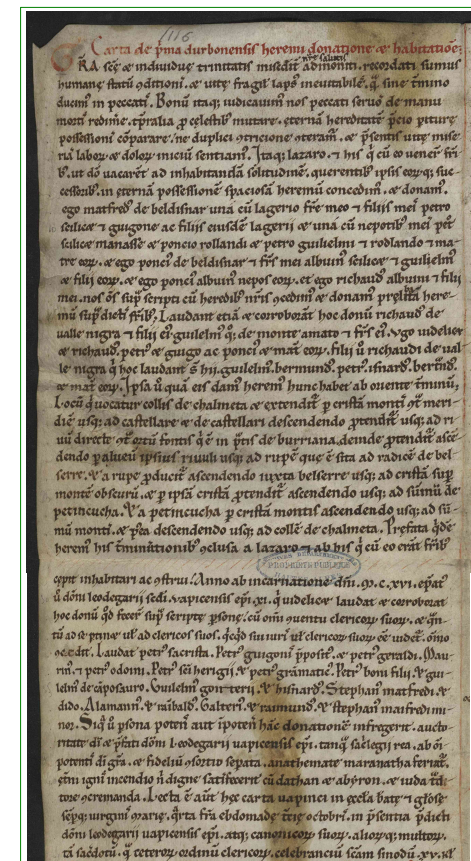 1116
Carta de p̄ma durbonensis heremi donatione & habitatiōe:
GRA scę & individuę trinitatis nr̄ę salutis admoniti. recordati sumus
humanę ꝯditioni. & vitę fragil lapsū inevitabilē. sine t̄mino
in peccati. Bonū itaq; iudicavim nos peccati servos de manu
morti redime. t̄pralia p celestib mutare. eternā hereditatē p̄cio
possessioni cōparare. ne duplici ꝯtricione & p̄sentis vitę mise
ria labor & dolor iniciū sentiam. Itaq; lazaro. & his q̄ cū eo vener̄ fr̄i
b. ut dō vacarēt ad inhabitandā solitudinē. querentib ipsis eorq; suc
cessorib. in eternā possessionē spaciosā heremū concedim. & donam.
ego matfred de beldisnar unā cū lagerio fr̄e meo & filiis mei petro
scilicę & guigone ac filiis eiusdē lagerii & unā cū nepotib mei pet̄
scilicę manassę & poncio rollandi & petro guilielmi & rodlando & ma
tre eor. & ego ponci de beldisnar & fr̄s mei albuin scilicę & guilielm
& filii eor. & ego ponci albuini nepos eor. et ego richaud albuini & filii
mei. nos oēs sup̄ scripti cū heredib nr̄is ꝯcedim & donam here
mū sup̄dicti fr̄ib. Laudant etiā & corroborāt hoc donū richaud de
valle nigra & filii ei guilelm q; de monte amato & fr̄s ei. Ugo videlicę
& richaud. petr & guigo ac ponci & mat̄ eor. filii ū richaudi de val
le nigra q̄ hoc laudant s̄ hii. guilelm. bermund. petr. isnard. bert̄nd.
& mat̄ eor. Ipsā ū quā eis dam heremū hunc habet ab oriente t̄minū.
Locū q̄ vocatur collis de chalmeta & extendit̄ p cristā monti ꝯt̄ meri
diē usq; ad castellare & de castellari descendendo ꝓtendit̄ usq; ad ri
vū directe ꝯt̄ ortū fontis q̄ ē in p̄tis de burriana. deinde ꝓtendit̄ ascē
dendo p alveū ipsius rivuli usq; ad rupē quę ē sita ad radicē de bel
serre. & a rupe ꝓducit̄ ascendendo iuxta belserre usq; ad cristā sup̄
montē obscurū & p ipsā cristā ꝓtendit̄ ascendendo usq; ad sūmū de
petincucha. & a petincucha p cristā montis ascendendo usq; ad sū
mū monti. & p̄ea descendendo usq; ad collē de chalmeta. Prefata q̄dē
herem his t̄minationib ꝯclusa a lazaro & ab his q̄ cū eo erāt fr̄ib
cępit inhabitari ac ꝯstrui. Anno ab incarnatione dn̄i. M. C. XVI. ep̄at
ū dōni leodegarii sedi vapicensis ep̄i. XI. q̄ videlicę laudat & corroborat
hoc donū q̄d fecer̄ sup̄ scriptę psonę. cū om̄i ꝯventu clericor suor. & q̄n
tū ad se ptinę vł ad clericos suos. sui iuri vł clericor suor ēę videt̄. om̄o
ꝯcedit. Laudat petr sacrista. Petr guigoni p̄posit. & petr geraldi. Mau
rin. & petr odoini. Petr sci herigii & petr grāmatic. Petr boni filii & gui
lelm de cāposauro. Guilelm gonterii. & bisnard. Stephan matfredi. &
dido. Alamann. & raibald. Galteri. & raimund. & stephan mainfredi mi
nor. Siq̄ ū psona potens aut īpotens hāc donationē infregerit. aucto
ritate dī & p̄fati dōni Leodegarii vapicensis ep̄i. tanq̄ sac̄legii rea. ab oī
potenti dī grā. & fidelium ꝯsortio sepata. anathemate maranatha feriat̄.
ęt̄ni igni incendio n̄ digne satisfecerit cū dathan & abyron. & iuda t̄di
tore ꝯcremanda. Lecta ē aūt hęc carta vapinci in ęccla batę & gl̄osę
semp̄q; virgini marię. q̄rta fr̄a ebdomadę t̄cię octobri. in p̄sentia p̄dicti
dōni leodegarii vapicensis ep̄i. atq; canonicor suor. alior q; multor.
tā sac̄dotū. q̄ ceteror ordinū clericor. celebranciū scām sinodū. XV. kł
PROPRIÉTÉ PUBLIQUE